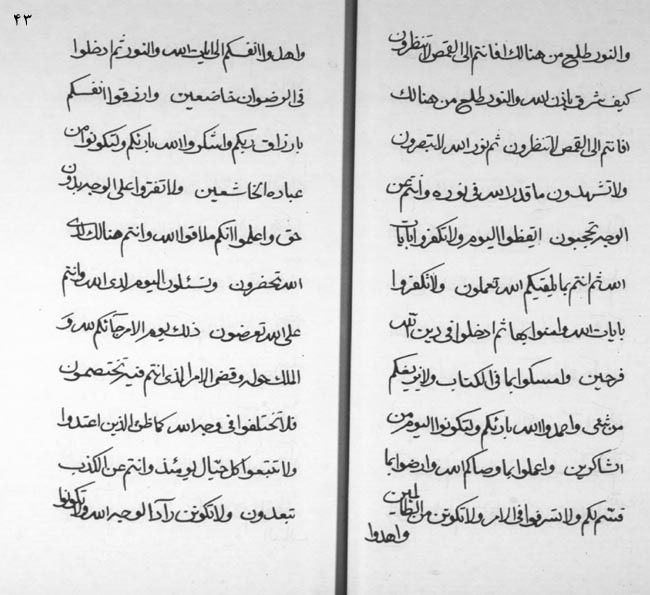 والنور طلع من هنالك افانتم الى القمص لا تنظرون
كيف شرق باذن الله والنور طلع من هنالك
افانتم الى القمص لا تنظرون ثم نور الله لا تبصرون
ولا تشهدون ما قدر الله فى نوره وانتم من
الوجه تحجبون اتيقظوا اليوم ولا تكفروا بايات
الله ثم انتم بما يلقيكم الله تعملون ولا تكفروا
بايات الله وامنوا بها ثم ادخلوا فى دين الله
فرحين وامسكوا بما فى الكتاب ولا
من شئ واحمدوا الله بارئكم ولتكونوا اليوم من
الشاكرين واعملوا بما وصاكم الله وارضوا بما
قسم لكم ولا تسرفوا فى الامر ولا تكونن من الظالمين
واهدوا
۴۳
واهدوا انفسكم الى ايات الله والنور ثم ادخلوا
فى الرضوان خاضعين وارزقوا انفسكم
بارزاق ربكم واشكروا الله بارئكم ولتكونوا من
عباده الخاشعين ولا تفتروا على الوجه بدون
حق واعلموا انكم ملاقوا الله وانتم هنالك لدى
الله تحضرون وتسئلون اليوم لدى الله وانتم
على الله تعرضون ذلك يوم الامر جائكم لله و
الملك حوله وقضى الامر الذى انتم فيه تختصمون
فلا تختلفوا فى وجه الله كما ظن الذين اعتدوا
ولا تتبعوا كل ختال يومئذ وانتم عن الكذب
تبعدون ولا تكونن رادا لوجه الله ولا تكونوا